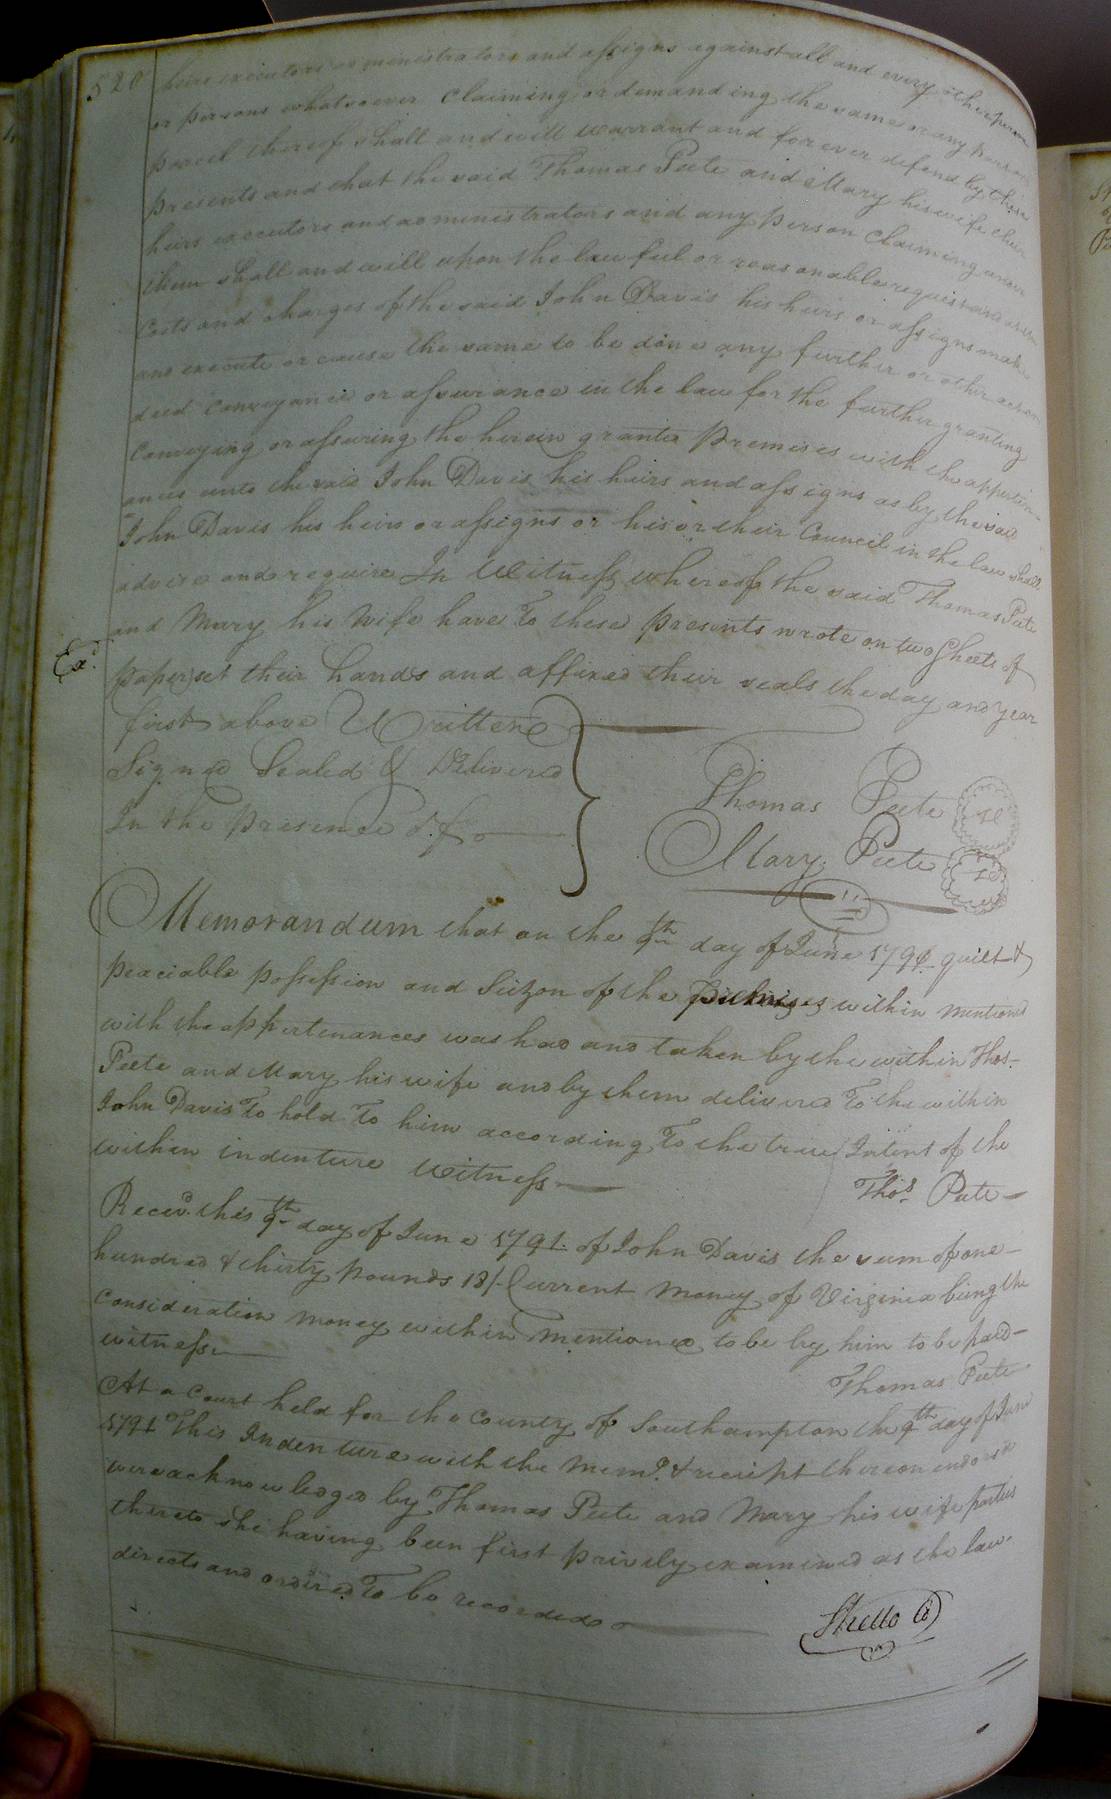 520
heirs executors administrators and assigns against all and every other person
or persons whatsoever claiming or demanding the same or any part or
parcel thereof shall and will warrant and forever defend by these
presents and that the said Thomas Peete and Mary his wife their
heirs executors and administrators and any person claiming under
them shall and will upon the lawful or reasonable request and at the
Costs and charges of the said John Davis his heirs or assigns make
and execute or cause the same to be done any further or other act or
deed conveyance or assurance in the law for the further granting
Conveying or assuring the herein granted Premises with the appertin-
ances unto the said John Davis his heirs and assigns as by the said
John Davis his heirs or assigns or his or their Council in the law shall
advise and require In Witness whereof the said Thomas Peete
and Mary his Wife have To these presents wrote on two Sheets of
Exd
paper set their hands and affixed their seals the day and year
first above Written
Signed Sealed & Delivered
In the presence of
Thomas Peete
Mary Peete
Memorandum that on the 9th day of June 1791 quiet &
peaciable possession and Seizon of the premises within mentioned
with the appertenances was had and taken by the within Thos.
Peete and Mary his wife and by them delivered To the within
John Davis To hold To him according To the true Intent of the
within indenture Witness
Thos Peete
Receivd. this 9th day of June 1791 of John Davis the sum of one
hundred & thirty pounds 18/- Current money of Virginia being the
Consideration money within mentioned to be by him to be paid
witness
Thomas Peete
At a Court held for the County of Southampton the 9th day of June
1791 This Indenture with the Memo. & reciept thereon endorsd
were acknowledged by Thomas Peete and Mary his wife parties
thereto she having been first privily examined as the law
directs and ordered To be recorded